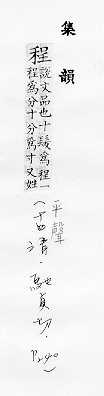 集韻
程 說文品也十髮爲程一
程爲分十分爲寸又姓
平聲
(十四清·馳貞切·P.240)